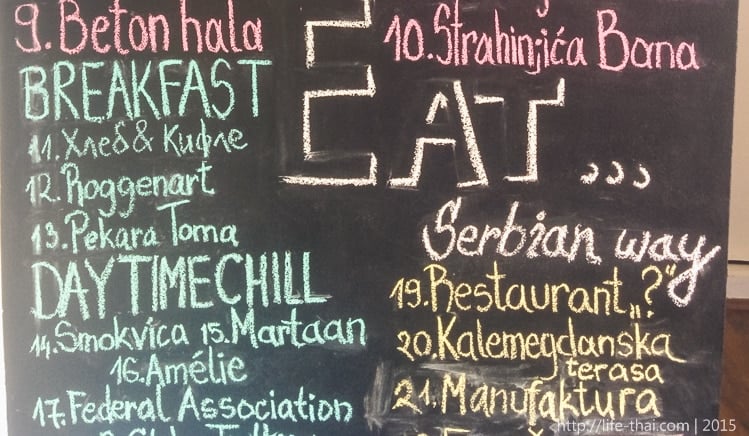 9. Beton hala
10. Strahinjića Bana
BREAKFAST
11. Хлеб & Кифле
12. Roggenart
13. Pekara Toma
DAYTIME CHILL
14. Smokvica 15. Martaan
16. Amélie
17. Federal Association
EAT...
Serbian way
19. Restaurant „?“
20. Kalemegdanska
terasa
21. Manufaktura
http://life-thai.com | 2015